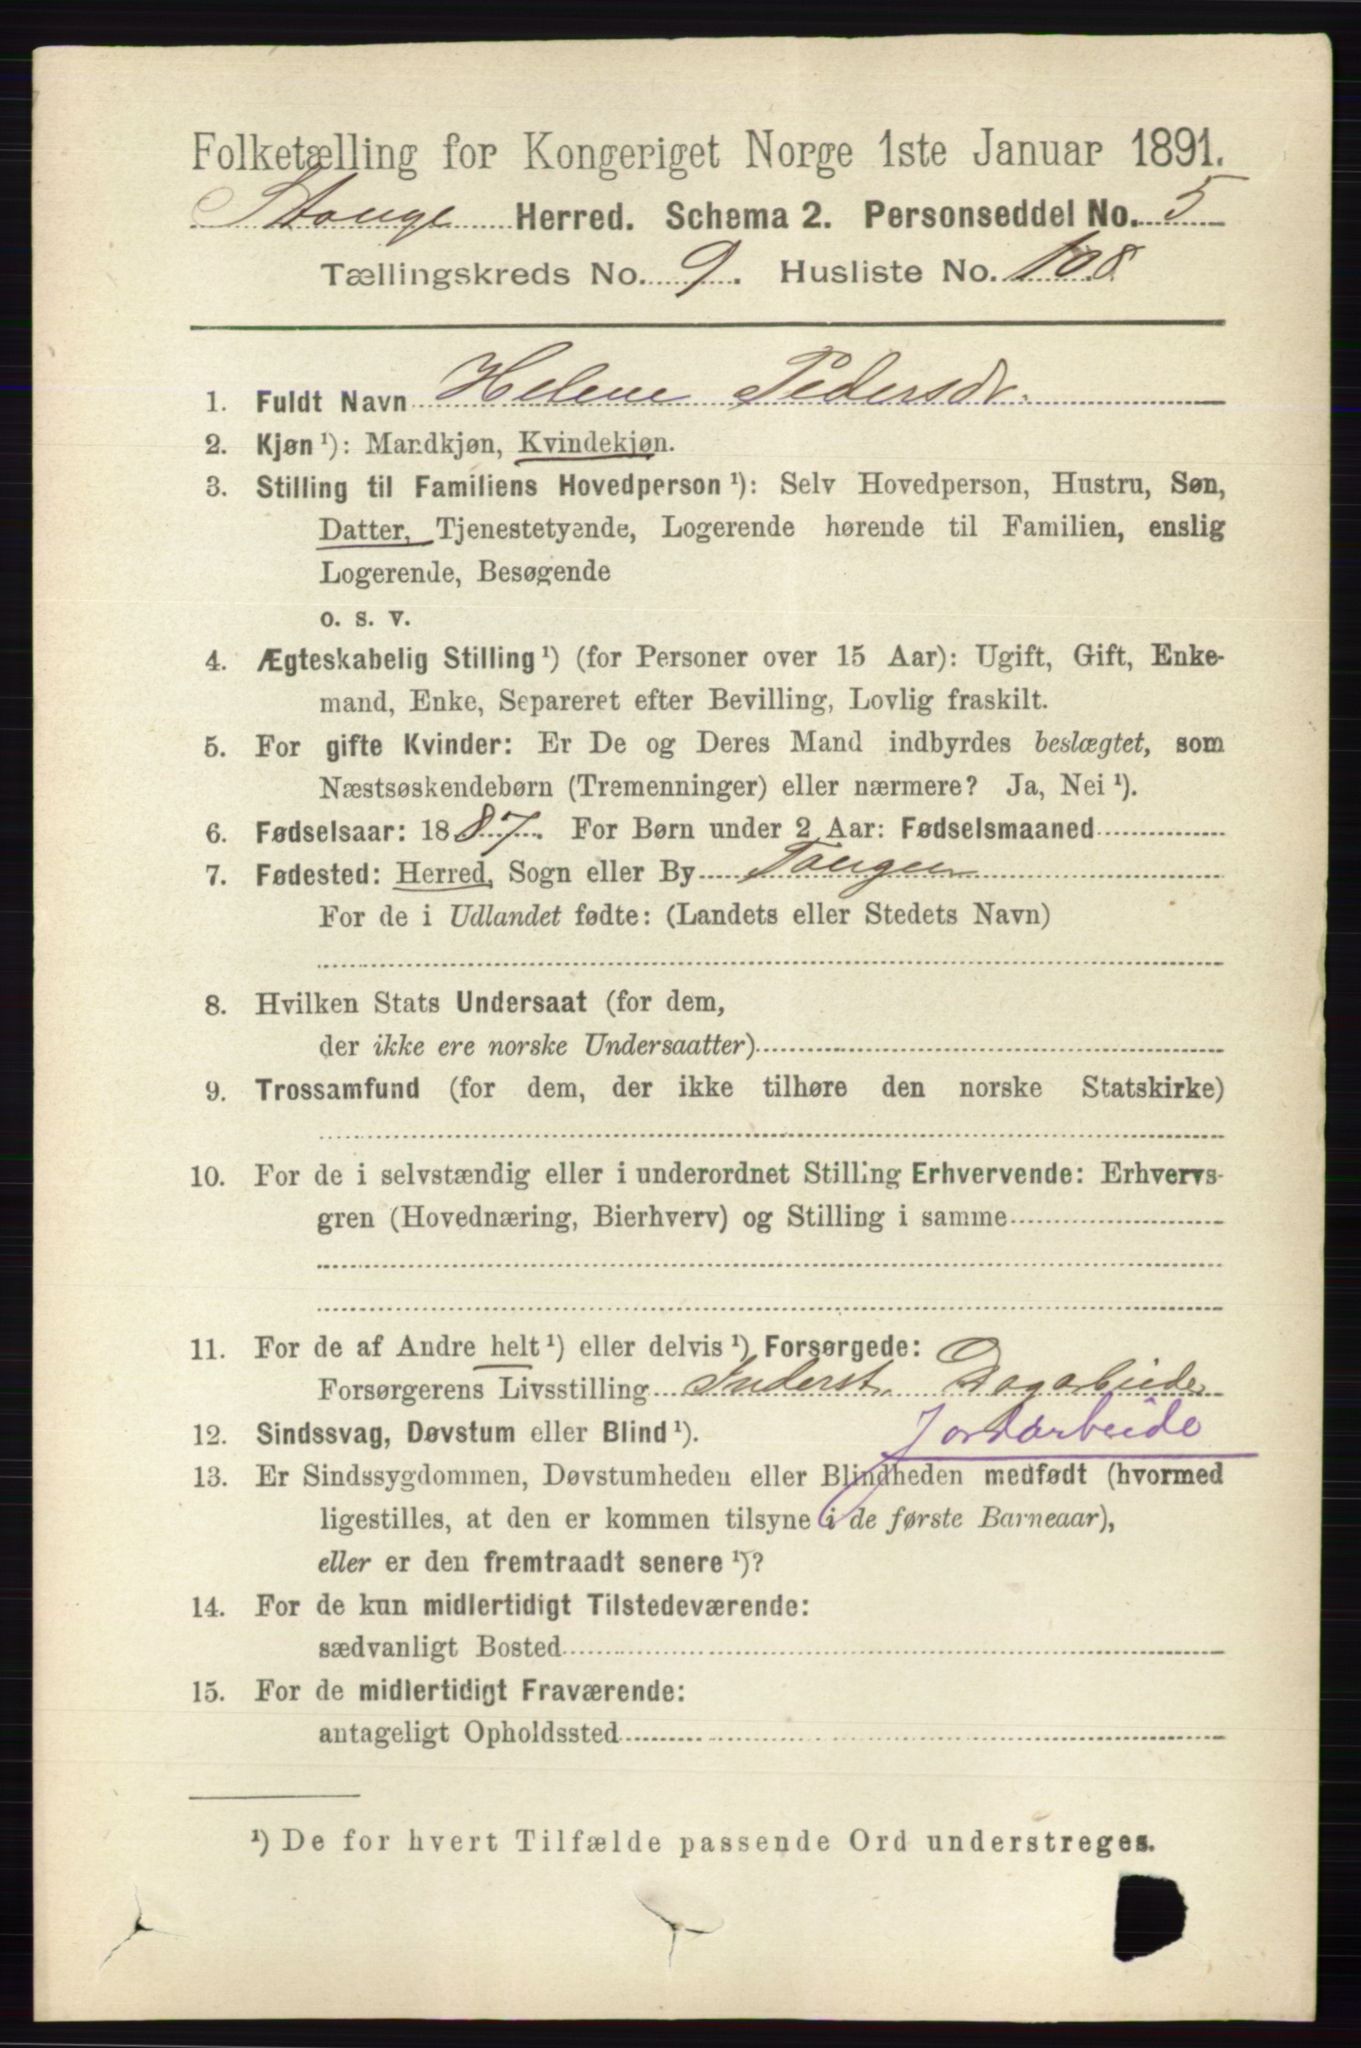 Folketælling for Kongeriget Norge 1ste Januar 1891.
Stange Herred. Schema 2. Personseddel No. 5
Tællingskreds No. 9. Husliste No. 108
1. Fuldt Navn Helene Pedersdr.
2. Kjøn ¹): Mandkjøn, Kvindekjøn.
3. Stilling til Familiens Hovedperson ¹): Selv Hovedperson, Hustru, Søn,
Datter, Tjenestetyende, Logerende hørende til Familien, enslig
Logerende, Besøgende
o. s. v.
4. Ægteskabelig Stilling ¹) (for Personer over 15 Aar): Ugift, Gift, Enke-
mand, Enke, Separeret efter Bevilling, Lovlig fraskilt.
5. For gifte Kvinder: Er De og Deres Mand indbyrdes beslægtet, som
Næstsøskendebørn (Tremenninger) eller nærmere? Ja, Nei ¹).
6. Fødselsaar: 1887. For Børn under 2 Aar: Fødselsmaaned
7. Fødested: Herred, Sogn eller By Tangen
For de i Udlandet fødte: (Landets eller Stedets Navn)
8. Hvilken Stats Undersaat (for dem,
der ikke ere norske Undersaatter)
9. Trossamfund (for dem, der ikke tilhøre den norske Statskirke)
10. For de i selvstændig eller i underordnet Stilling Erhvervende: Erhvervs-
gren (Hovednæring, Bierhverv) og Stilling i samme
11. For de af Andre helt ¹) eller delvis ¹) Forsørgede:
Forsørgerens Livsstilling Inderst, Dagarbeide
Jordarbeide
12. Sindssvag, Døvstum eller Blind ¹).
13. Er Sindssygdommen, Døvstumheden eller Blindheden medfødt (hvormed
ligestilles, at den er kommen tilsyne i de første Barneaar),
eller er den fremtraadt senere ¹)?
14. For de kun midlertidigt Tilstedeværende:
sædvanligt Bosted
15. For de midlertidigt Fraværende:
antageligt Opholdssted
¹) De for hvert Tilfælde passende Ord understreges.